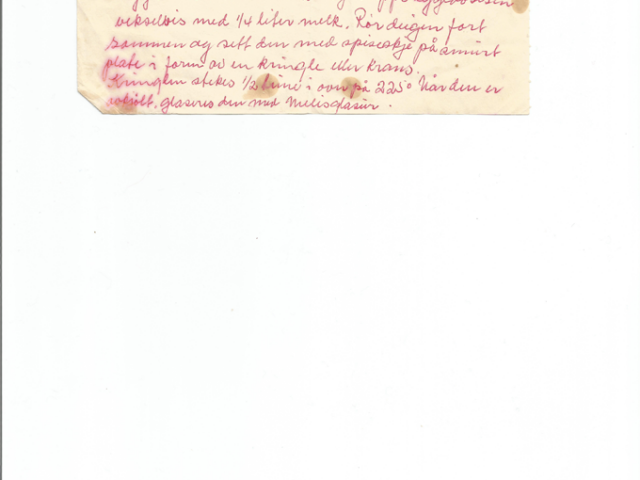 vekselvis med 1/4 liter melk. Rør deigen fort
sammen og sett den med spiseskje på smurt
plate i form av en kringle eller krans.
Kringlen stekes 1/2 time i ovn på 225° Når den er
avkjølt, glaseres den med Melisglasur.